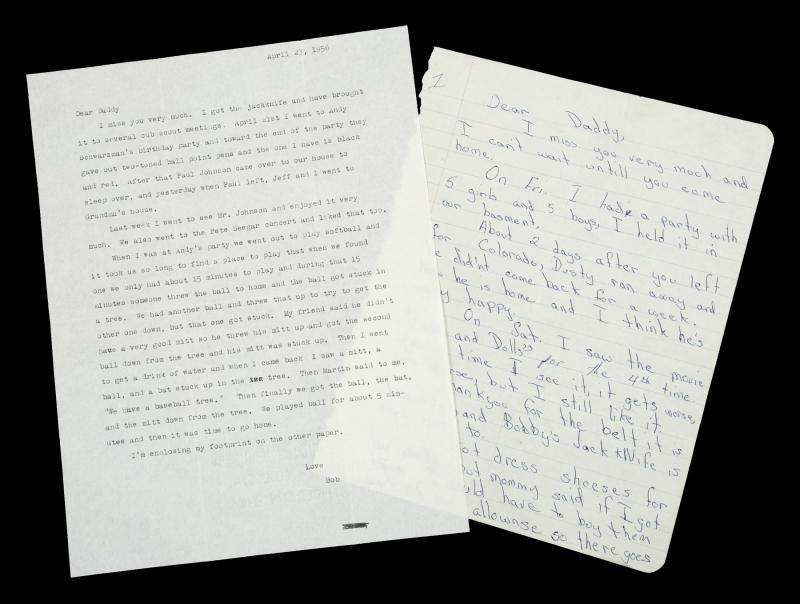 April 23, 1956
Dear Daddy
I miss you very much. I got the jacknife and have brought
it to several cub scout meetings. April 21st I went to Andy
Schwarzman's birthday party and toward the end of the party they
gave out two-toned ball point pens and the one I have is black
and red. After that Paul Johnson came over to our house to
sleep over, and yesterday when Paul left, Jeff and I went to
Grandma's house.
Last week I went to see Mr. Johnson and enjoyed it very
much. We also went to the Pete Seegar concert and liked that too.
When I was at Andy's party we went out to play softball and
it took us so long to find a place to play that when we found
one we only had about 15 minutes to play and during that 15
minutes someone threw the ball to home and the ball got stuck in
a tree. We had another ball and threw that up to try to get the
other one down, but that one got stuck. My friend said he didn't
have a very good mitt so he threw his mitt up and got the second
ball down from the tree and his mitt was stuck up. Then I went
to get a drink of water and when I came back I saw a mitt, a
ball, and a bat stuck up in the tree. Then Martin said to me,
"We have a baseball tree." Then finally we got the ball, the bat,
and the mitt down from the tree. We played ball for about 5 min-
utes and then it was time to go home.
I'm enclosing my footprint on the other paper.
Love
Bob
1
Dear Daddy,
I miss you very much and
I can't wait untill you come
home.
On Fri. I had a party with
5 girls and 5 boys, I held it in
our basment.
About 2 days after you left
for Colorado, Dusty, ran away and
didn't come back for a week.
he is home and I think he's
happy.
On Sat. I saw the movie
and Doll's for the 4th time
time I see it, it gets worse,
but I still like it.
for the belt it is
and Bobby's Jack Knife is
to.
dress shoeses for
but mommy said if I got
have to boy them
allownse so there goes